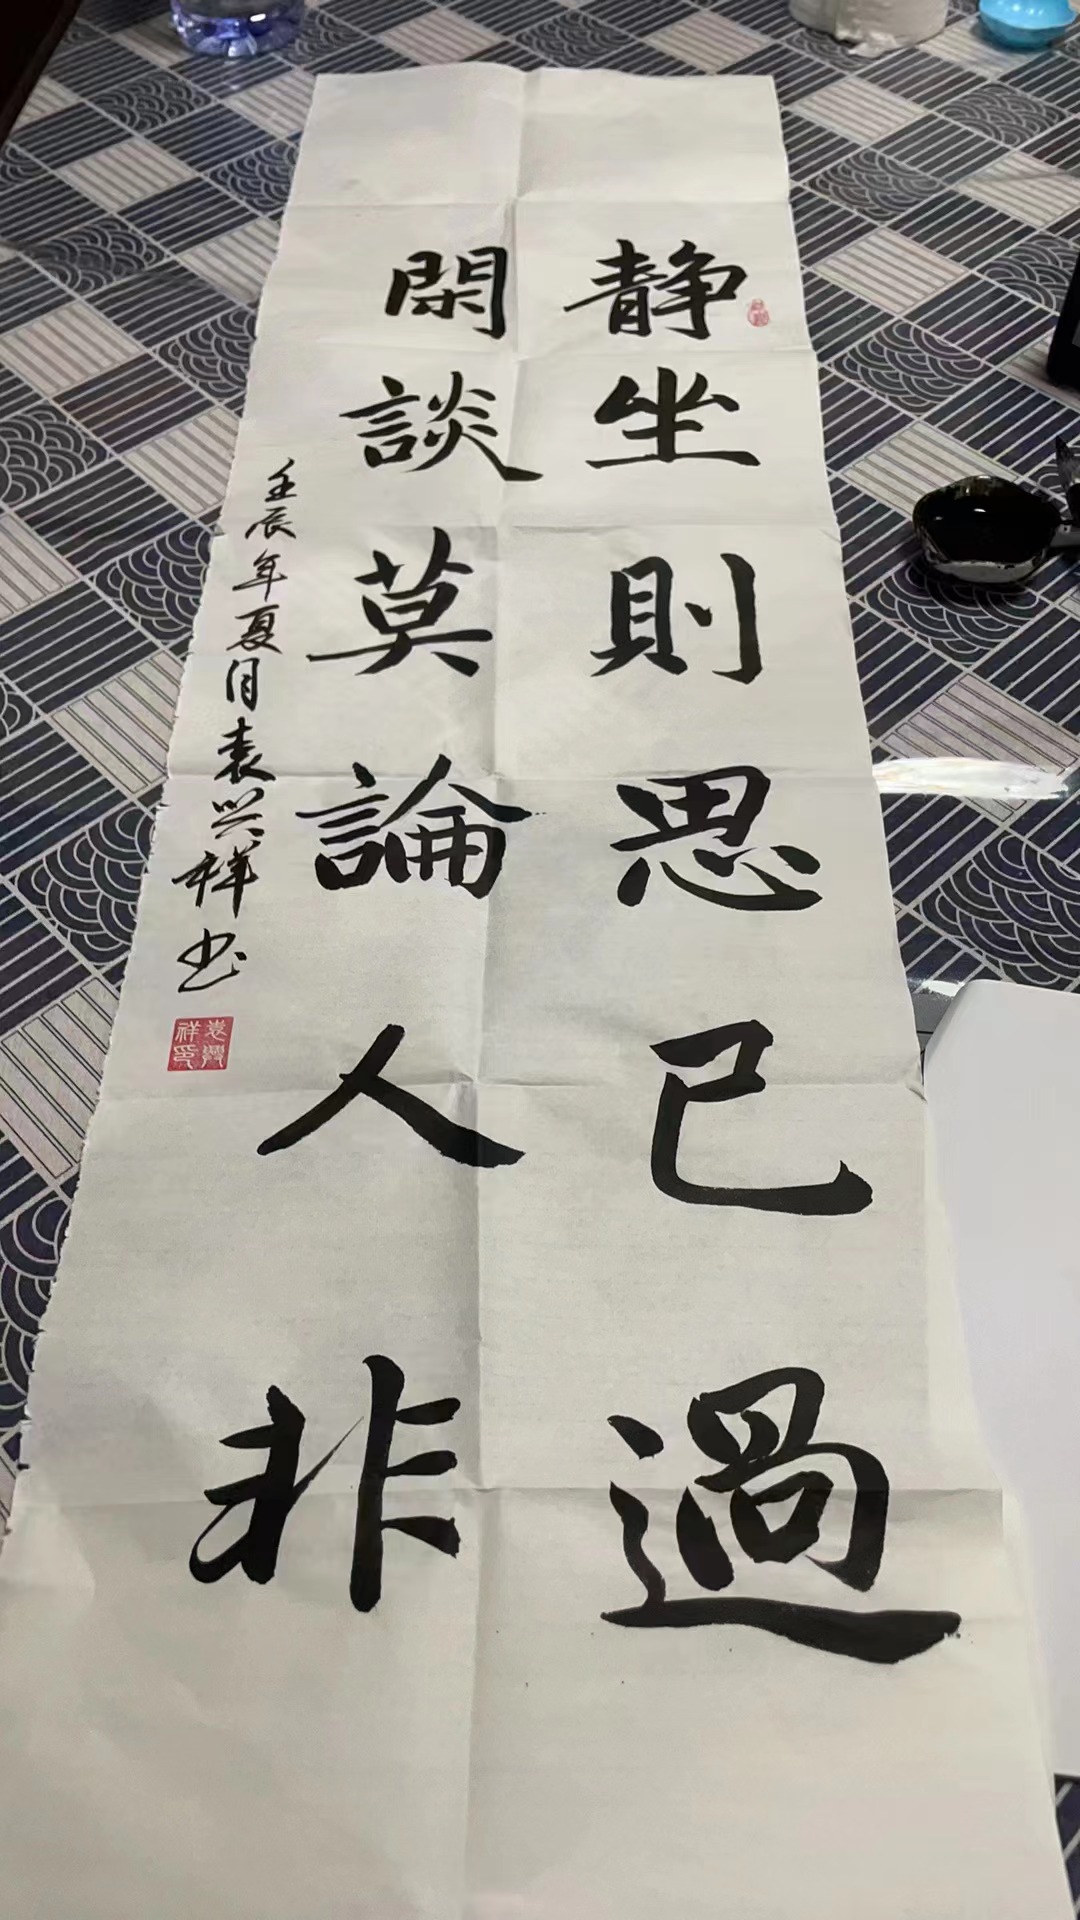 静坐則思己過
閑談莫論人非
壬辰年夏月袁兴祥书
袁興祥印